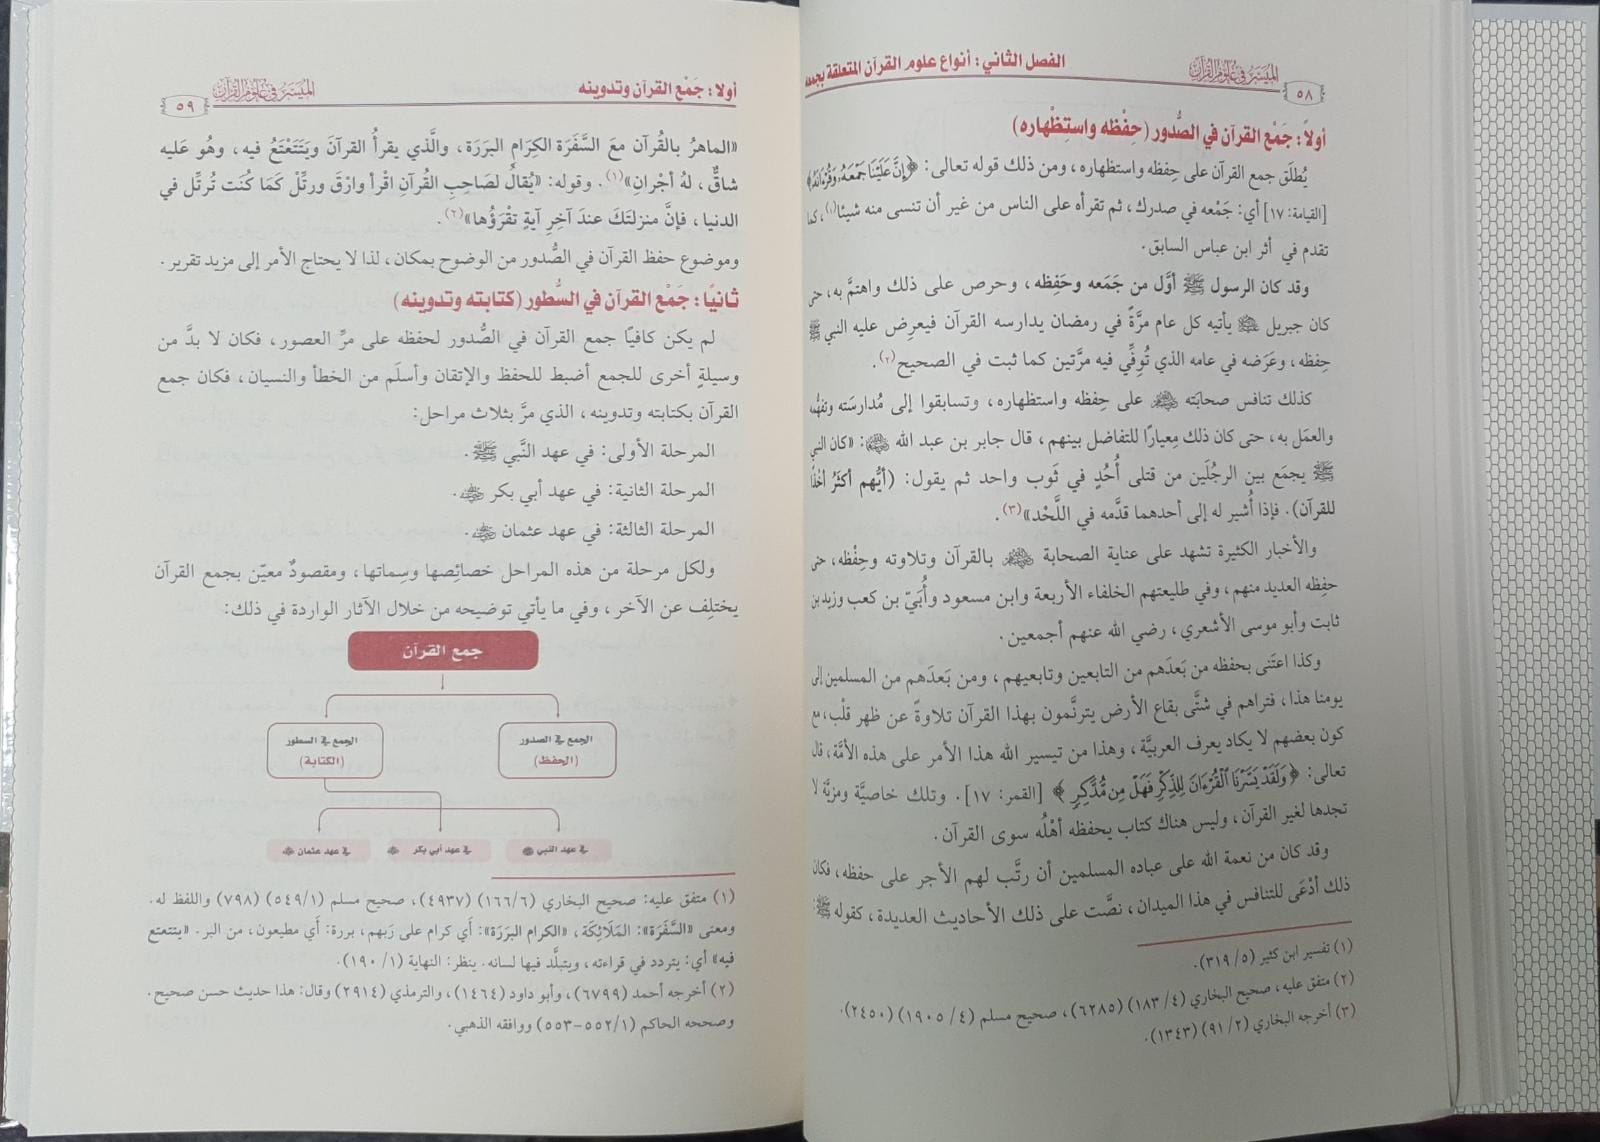 الميسر في علوم القرآن
الفصل الثاني: أنواع علوم القرآن المتعلقة بجمعه
٥٨
أولاً: جَمْع القرآن في الصُّدور (حِفْظه واستِظْهاره)
يُطلَق جمع القرآن على حِفظه واستظهاره، ومن ذلك قوله تعالى: ﴿إِنَّ عَلَيْنَا جَمْعَهُۥ وَقُرْءَانَهُۥ﴾
[القيامة: ١٧] أي: جَمْعه في صدرك، ثم تقرأه على الناس من غير أن تنسى منه شيئا(١)، كما
تقدم في أثر ابن عباس السابق.
وقد كان الرسول ﷺ أوَّل من جَمَعه وحَفِظه، وحرص على ذلك واهتمَّ به، حتى
كان جبريل عليه السلام يأتيه كل عام مرَّةً في رمضان يدارسه القرآن فيعرِض عليه النبي ﷺ
حِفظه، وعَرَضه في عامه الذي تُوفِّي فيه مرَّتين كما ثبت في الصحيح(٢).
كذلك تنافس صحابَته رضي الله عنهم على حِفظه واستظهاره، وتسابقوا إلى مُدارسَته وتفهُّمه
والعمَل به، حتى كان ذلك مِعيارًا للتفاضل بينهم، قال جابر بن عبد الله رضي الله عنهما: «كان النبي
ﷺ يجمَع بين الرجُلَين من قتلى أُحُدٍ في ثَوب واحد ثم يقول: (أيُّهم أكثَرُ أخْذًا
للقرآن). فإذا أُشير له إلى أحدهما قدَّمه في اللَّحْد»(٣).
والأخبار الكثيرة تشهد على عناية الصحابة رضي الله عنهم بالقرآن وتلاوته وحِفْظه، حتى
حفِظه العديد منهم، وفي طليعتهم الخلفاء الأربعة وابن مسعود وأُبَيّ بن كعب وزيد بن
ثابت وأبو موسى الأشعري، رضي الله عنهم أجمعين.
وكذا اعتَنى بحفظه من بَعدَهم من التابعين وتابعيهم، ومن بَعدَهم من المسلمين إلى
يومنا هذا، فتراهم في شتَّى بقاع الأرض يترنَّمون بهذا القرآن تلاوةً عن ظهر قلْب، مع
كون بعضهم لا يكاد يعرف العربيَّة، وهذا من تيسير الله هذا الأمر على هذه الأمَّة، قال
تعالى: ﴿وَلَقَدْ يَسَّرْنَا ٱلْقُرْءَانَ لِلذِّكْرِ فَهَلْ مِن مُّدَّكِرٍ﴾ [القمر: ١٧]. وتلك خاصيَّة ومزيَّة لا
تجدها لغير القرآن، وليس هناك كتاب يحفظه أهْلُه سوى القرآن.
وقد كان من نعمة الله على عباده المسلمين أن رتَّب لهم الأجر على حفظه، فكان
ذلك أدْعَى للتنافس في هذا الميدان، نصَّت على ذلك الأحاديث العديدة، كقوله ﷺ:
(١) تفسير ابن كثير (٥/ ٣١٩).
(٢) متفق عليه، صحيح البخاري (٤/ ١٨٣) (٦٢٨٥)، صحيح مسلم (٤/ ١٩٠٥) (٢٤٥٠).
(٣) أخرجه البخاري (٢/ ٩١) (١٣٤٣).
أولا: جَمْع القرآن وتدوينه
الميسر في علوم القرآن
٥٩
«الماهرُ بالقُرآن معَ السَّفَرَة الكِرَامِ البرَرَة، والَّذي يقرأُ القرآنَ ويَتَتَعْتَعُ فيه، وهُو عَليه
شاقٌّ، لهُ أجْرانِ»(١). وقوله: «يُقالُ لصَاحِبِ القُرآنِ اقْرأ وارْقَ ورتِّلْ كَمَا كُنَت تُرتِّل في
الدنيا، فإنَّ منزلتَكَ عندَ آخِرِ آيةٍ تقْرَؤُها»(٢).
وموضوع حفظ القرآن في الصُّدور من الوضوح بمكان، لذا لا يحتاج الأمر إلى مزيد تقرير.
ثانيًا: جَمْع القرآن في السُّطور (كتابته وتدوينه)
لم يكن كافيًا جمع القرآن في الصُّدور لحفظه على مرِّ العصور، فكان لا بدَّ من
وسيلةٍ أخرى للجمع أضبط للحفظ والإتقان وأسلَم من الخطأ والنسيان، فكان جمع
القرآن بكتابته وتدوينه، الذي مرَّ بثلاث مراحل:
المرحلة الأولى: في عهد النَّبي ﷺ.
المرحلة الثانية: في عهد أبي بكر رضي الله عنه.
المرحلة الثالثة: في عهد عثمان رضي الله عنه.
ولكل مرحلة من هذه المراحل خصائِصها وسِماتها، ومقصودٌ معيّن بجمع القرآن
يختلِف عن الآخر، وفي ما يأتي توضيحه من خلال الآثار الواردة في ذلك:
جمع القرآن
الجمع في الصدور
(الحفظ)
الجمع في السطور
(الكتابة)
في عهد النبي ﷺ
في عهد أبي بكر رضي الله عنه
في عهد عثمان رضي الله عنه
(١) متفق عليه: صحيح البخاري (٦/ ١٦٦) (٤٩٣٧)، صحيح مسلم (١/ ٥٤٩) (٧٩٨) واللفظ له.
ومعنى «السَّفَرَة»: المَلَائِكَة، «الكرام البرَرَة»: أي كرام على رَبهم، بررة: أي مطيعون، من البر. «يتتعتع
فيه» أي: يتردد في قراءته، ويتبلَّد فيها لسانه. ينظر: النهاية (١/ ١٩٠).
(٢) أخرجه أحمد (٦٧٩٩)، وأبو داود (١٤٦٤)، والترمذي (٢٩١٤) وقال: هذا حديث حسن صحيح.
وصححه الحاكم (١/ ٥٥٢-٥٥٣) ووافقه الذهبي.